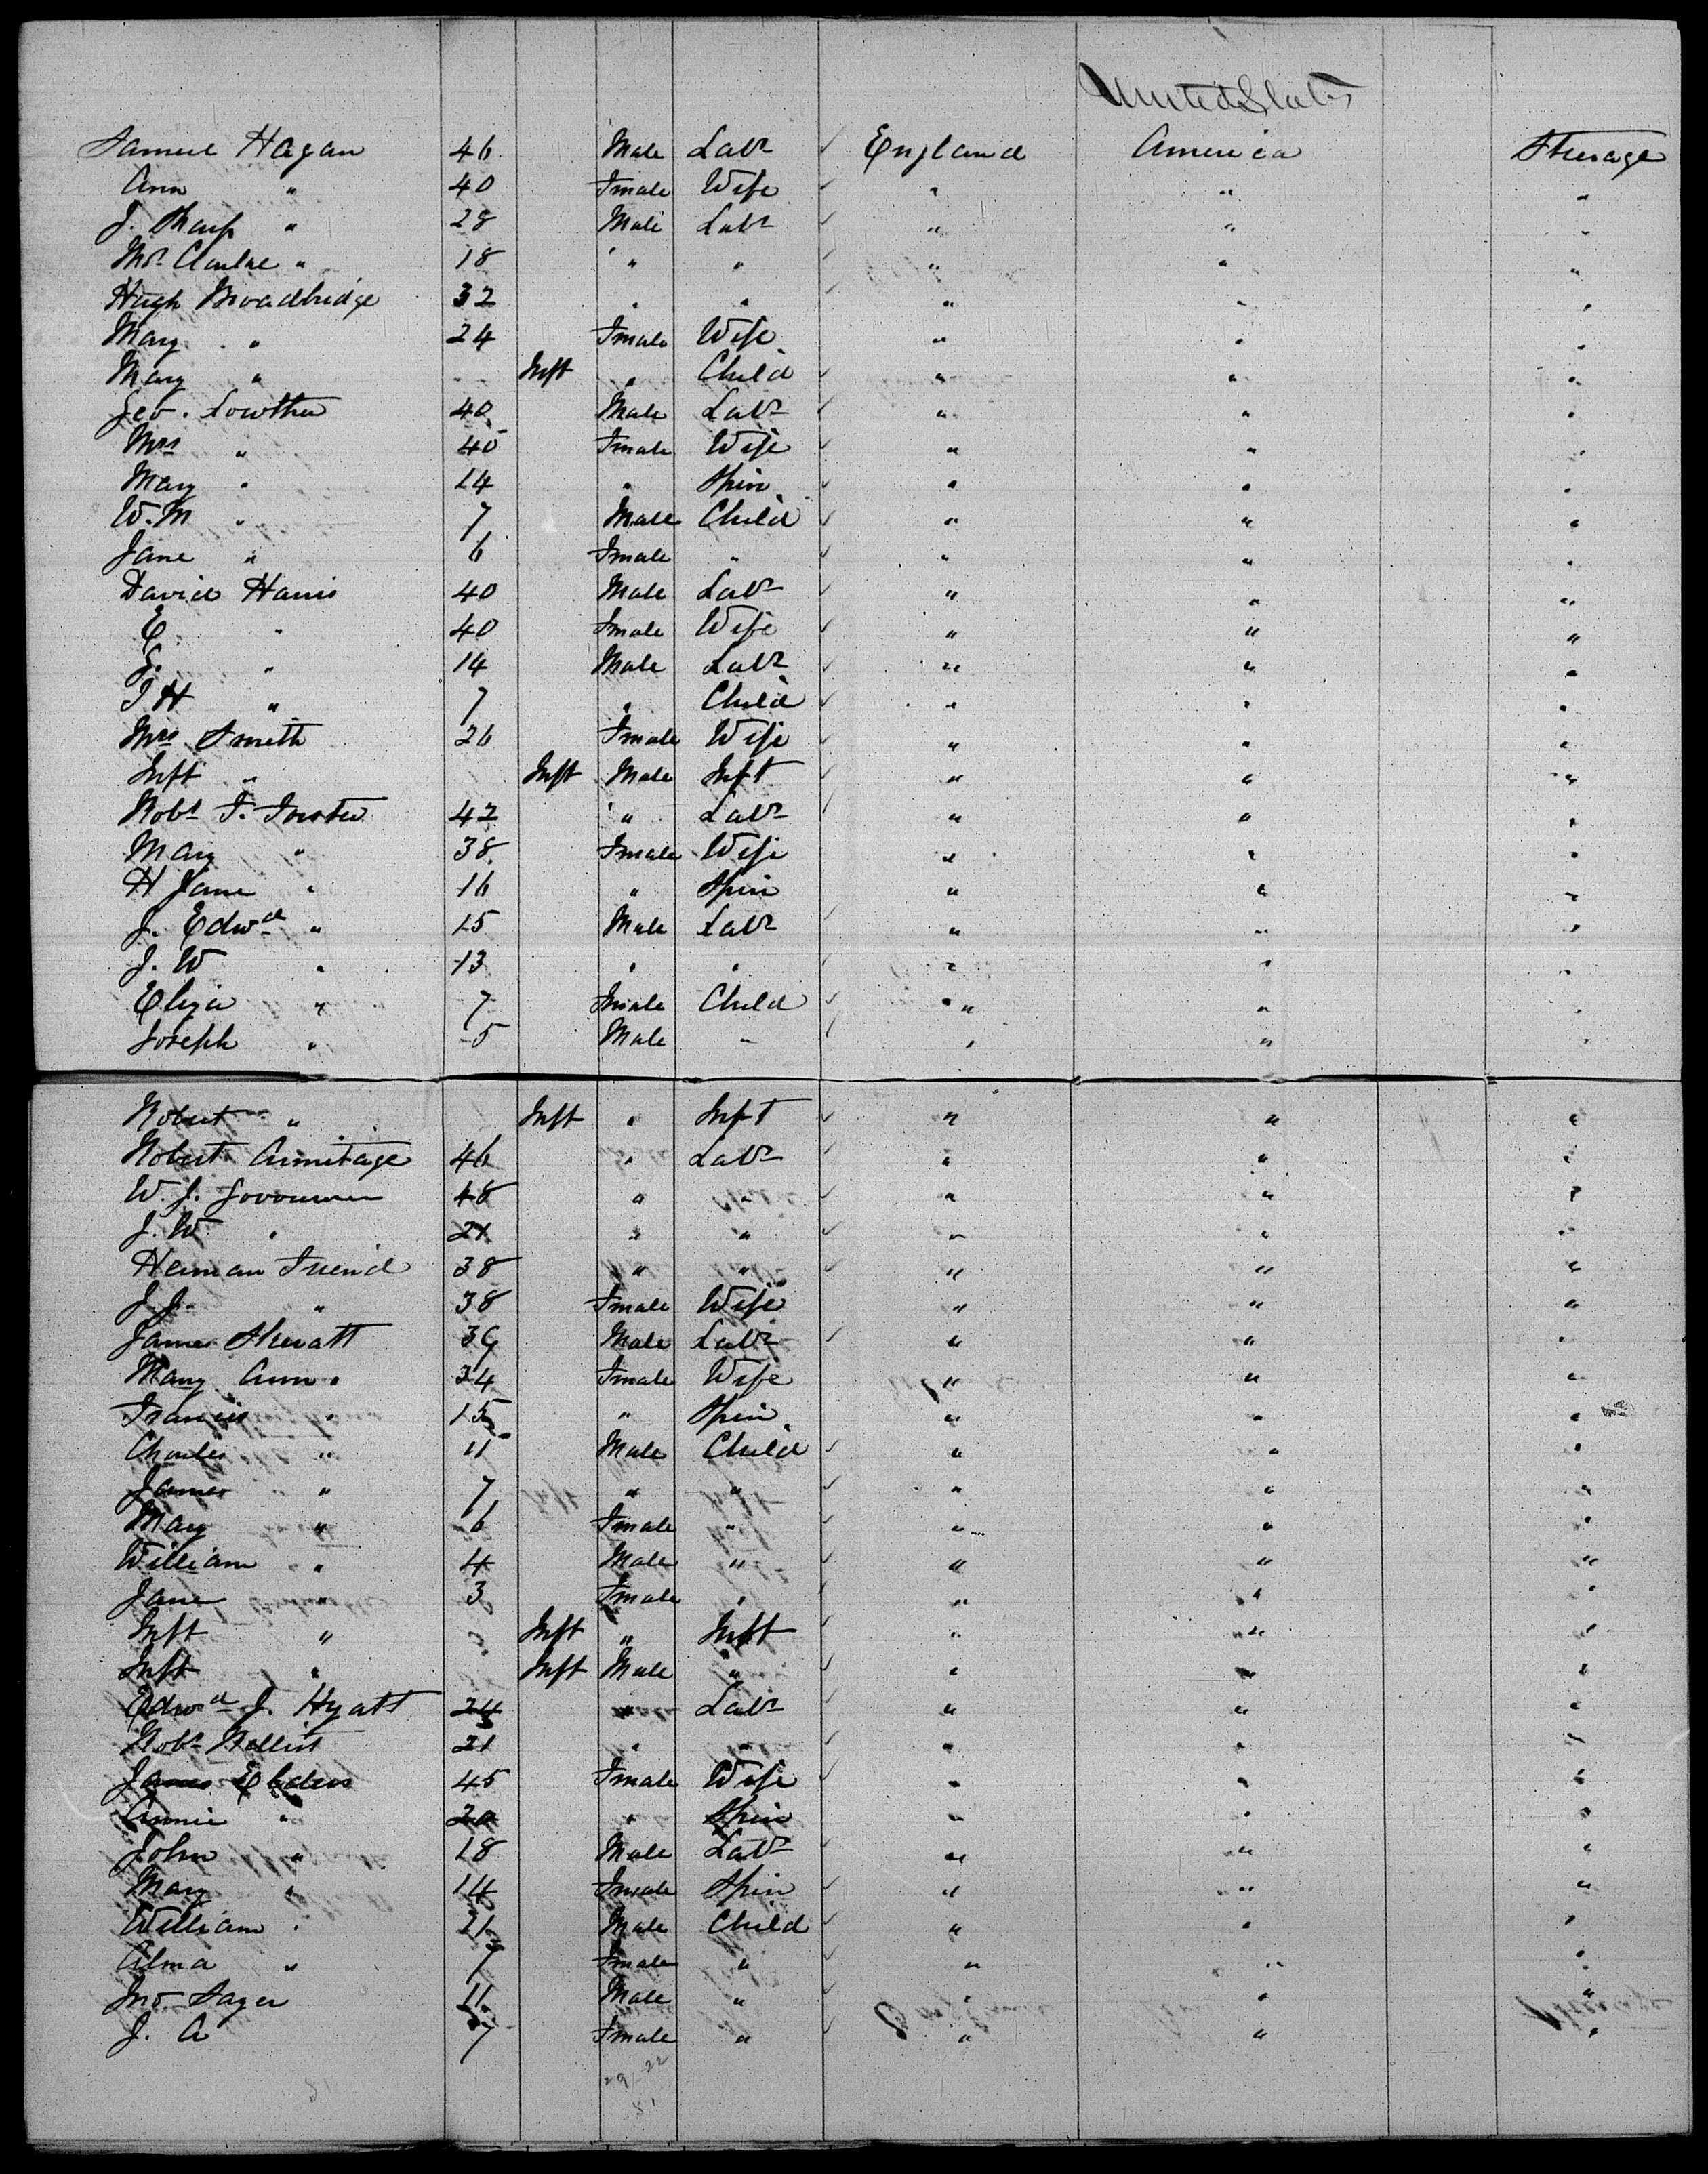 United States
Samuel Hagan 46 Male Labr ✓ England America Steerage
Ann " 40 Fmale Wife ✓ " " "
J. Sharp " 28 Male Labr ✓ " " "
Mr. Clarke " 18 " " ✓ " " "
Hugh Broadbridge 32 " " ✓ " " "
Mary " 24 Fmale Wife ✓ " " "
Mary " Inft " Child ✓ " " "
Geo. Lowther 40 Male Labr ✓ " " "
Mrs " 40 Fmale Wife ✓ " " "
Mary " 14 " Spin ✓ " " "
W. M " 7 Male Child ✓ " " "
Jane " 6 Fmale " ✓ " " "
David Harris 40 Male Labr ✓ " " "
E " 40 Fmale Wife ✓ " " "
" 14 Male Labr ✓ " " "
J H " 7 " Child ✓ " " "
Mrs Smith 26 Fmale Wife ✓ " " "
Inft " Inft Male Inft ✓ " " "
Robt F. Forster 42 " Labr ✓ " " "
Mary " 38 Fmale Wife " " "
H Jane " 16 " Spin ✓ " " "
J. Edwd " 15 Male Labr ✓ " " "
J. W " 13 " " ✓ " " "
Eliza " 7 Fmale Child ✓ " " "
Joseph " 5 Male " ✓ " " "
Robert " Inft " Inft ✓ " " "
Robert Armitage 46 " Labr ✓ " " "
W. J. 48 " " ✓ " " "
J. W " 21 " " ✓ " " "
Herman Friend 38 " " ✓ " " "
J. J. " 38 Fmale Wife " " "
James 39 Male Labr ✓ " " "
Mary Ann " 34 Fmale Wife " " "
Francis " 15 " Spin " " "
Charles " 11 Male Child ✓ " " "
James " 7 " " ✓ " " "
Mary " 6 Fmale " ✓ " " "
William " 4 Male " ✓ " " "
Jane " 3 Fmale " ✓ " " "
Inft " Inft " Inft ✓ " " "
Inft " Inft Male " ✓ " " "
Edwd J. Hyatt 24 " Labr ✓ " " "
Robt 21 " " ✓ " " "
45 Fmale Wife ✓ " " "
Annie " 20 " Spin ✓ " " "
John " 18 Male Labr ✓ " " "
Mary " 14 Fmale Spin ✓ " " "
William " 21 Male Child ✓ " " "
Alma " 7 Fmale " ✓ " " "
Jno Sager 11 Male " ✓ " " "
J. A 7 Fmale " ✓ " " "